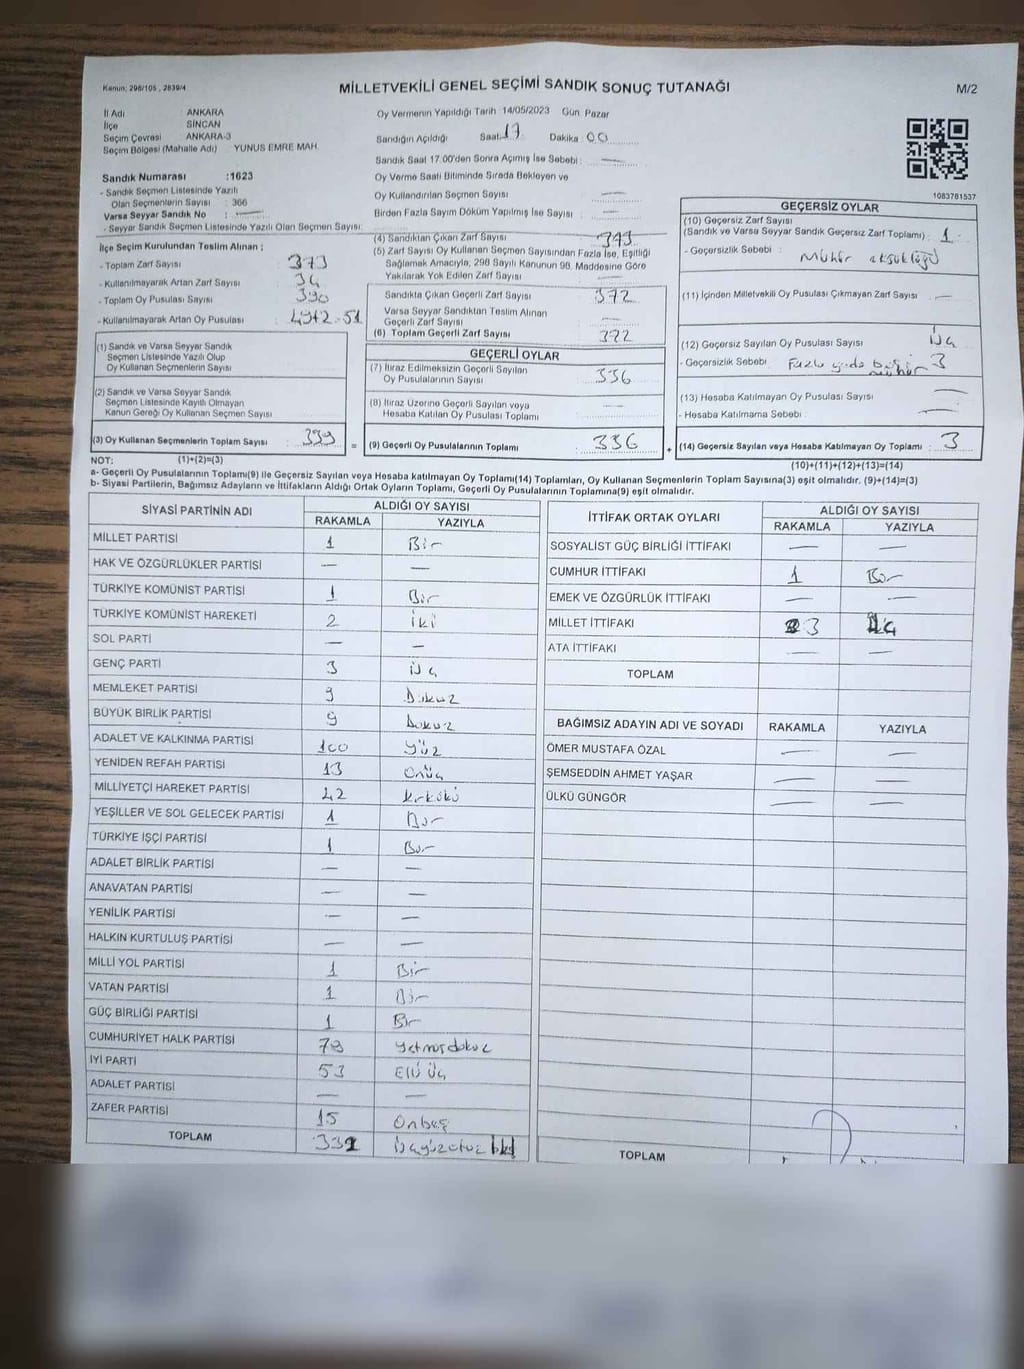 Kanun: 298/105 , 2839/4
MİLLETVEKİLİ GENEL SEÇİMİ SANDIK SONUÇ TUTANAĞI
M/2
İl Adı : ANKARA
İlçe : SİNCAN
Seçim Çevresi : ANKARA-3
Seçim Bölgesi (Mahalle Adı) : YUNUS EMRE MAH.
Sandık Numarası :1623
- Sandık Seçmen Listesinde Yazılı
Olan Seçmenlerin Sayısı : 366
Varsa Seyyar Sandık No : —
- Seyyar Sandık Seçmen Listesinde Yazılı Olan Seçmen Sayısı:
Oy Vermenin Yapıldığı Tarih :14/05/2023 Gün Pazar
Sandığın Açıldığı Saat: 17 Dakika : 00
Sandık Saat 17.00'den Sonra Açımış İse Sebebi : —
Oy Verme Saati Bitiminde Sırada Bekleyen ve
Oy Kullandırılan Seçmen Sayısı —
Birden Fazla Sayım Döküm Yapılmış İse Sayısı : —
1083781537
İlçe Seçim Kurulundan Teslim Alınan ;
- Toplam Zarf Sayısı : 373
- Kullanılmayarak Artan Zarf Sayısı : 34
- Toplam Oy Pusulası Sayısı : 390
- Kullanılmayarak Artan Oy Pusulası :
(1) Sandık ve Varsa Seyyar Sandık
Seçmen Listesinde Yazılı Olup
Oy Kullanan Seçmenlerin Sayısı :
(2) Sandık ve Varsa Seyyar Sandık
Seçmen Listesinde Kayıtlı Olmayan
Kanun Gereği Oy Kullanan Seçmen Sayısı :
(3) Oy Kullanan Seçmenlerin Toplam Sayısı : 339
(4) Sandıktan Çıkan Zarf Sayısı :
(5) Zarf Sayısı Oy Kullanan Seçmen Sayısından Fazla İse, Eşitliği
Sağlamak Amacıyla, 298 Sayılı Kanunun 98. Maddesine Göre
Yakılarak Yok Edilen Zarf Sayısı : —
Sandıkta Çıkan Geçerli Zarf Sayısı : 372
Varsa Seyyar Sandıktan Teslim Alınan
Geçerli Zarf Sayısı : —
(6) Toplam Geçerli Zarf Sayısı : 372
GEÇERLİ OYLAR
(7) İtiraz Edilmeksizin Geçerli Sayılan
Oy Pusulalarının Sayısı : 336
(8) İtiraz Üzerine Geçerli Sayılan veya
Hesaba Katılan Oy Pusulası Toplamı : —
= (9) Geçerli Oy Pusulalarının Toplamı : 336
GEÇERSİZ OYLAR
(10) Geçersiz Zarf Sayısı
(Sandık ve Varsa Seyyar Sandık Geçersiz Zarf Toplamı) : 1
- Geçersizlik Sebebi : Mühür eksikliği
(11) İçinden Milletvekili Oy Pusulası Çıkmayan Zarf Sayısı : —
(12) Geçersiz Sayılan Oy Pusulası Sayısı : Üç
- Geçersizlik Sebebi : Fazla yada mühür 3
(13) Hesaba Katılmayan Oy Pusulası Sayısı : —
- Hesaba Katılmama Sebebi : —
+ (14) Geçersiz Sayılan veya Hesaba Katılmayan Oy Toplamı : 3
NOT: (1)+(2)=(3)
(10)+(11)+(12)+(13)=(14)
a- Geçerli Oy Pusulalarının Toplamı(9) ile Geçersiz Sayılan veya Hesaba katılmayan Oy Toplamı(14) Toplamları, Oy Kullanan Seçmenlerin Toplam Sayısına(3) eşit olmalıdır. (9)+(14)=(3)
b- Siyasi Partilerin, Bağımsız Adayların ve İttifakların Aldığı Ortak Oyların Toplamı, Geçerli Oy Pusulalarının Toplamına(9) eşit olmalıdır.
SİYASİ PARTİNİN ADI
ALDIĞI OY SAYISI
RAKAMLA YAZIYLA
MİLLET PARTİSİ 1 Bir
HAK VE ÖZGÜRLÜKLER PARTİSİ — —
TÜRKİYE KOMÜNİST PARTİSİ 1 Bir
TÜRKİYE KOMÜNİST HAREKETİ 2 iki
SOL PARTİ — —
GENÇ PARTİ 3 üç
MEMLEKET PARTİSİ 9 Dokuz
BÜYÜK BİRLİK PARTİSİ 9 Dokuz
ADALET VE KALKINMA PARTİSİ 100 yüz
YENİDEN REFAH PARTİSİ 13 Onüç
MİLLİYETÇİ HAREKET PARTİSİ 42 kırkiki
YEŞİLLER VE SOL GELECEK PARTİSİ 1 Bir
TÜRKİYE İŞÇİ PARTİSİ 1 Bir
ADALET BİRLİK PARTİSİ — —
ANAVATAN PARTİSİ — —
YENİLİK PARTİSİ — —
HALKIN KURTULUŞ PARTİSİ — —
MİLLİ YOL PARTİSİ 1 Bir
VATAN PARTİSİ 1 Bir
GÜÇ BİRLİĞİ PARTİSİ 1 Bir
CUMHURİYET HALK PARTİSİ 79 yetmişdokuz
İYİ PARTİ 53 Elli üç
ADALET PARTİSİ — —
ZAFER PARTİSİ 15 Onbeş
TOPLAM 332 üçyüzotuz iki
İTTİFAK ORTAK OYLARI
ALDIĞI OY SAYISI
RAKAMLA YAZIYLA
SOSYALİST GÜÇ BİRLİĞİ İTTİFAKI — —
CUMHUR İTTİFAKI 1 Bir
EMEK VE ÖZGÜRLÜK İTTİFAKI — —
MİLLET İTTİFAKI 3 üç
ATA İTTİFAKI — —
TOPLAM
BAĞIMSIZ ADAYIN ADI VE SOYADI RAKAMLA YAZIYLA
ÖMER MUSTAFA ÖZAL — —
ŞEMSEDDİN AHMET YAŞAR — —
ÜLKÜ GÜNGÖR — —
TOPLAM